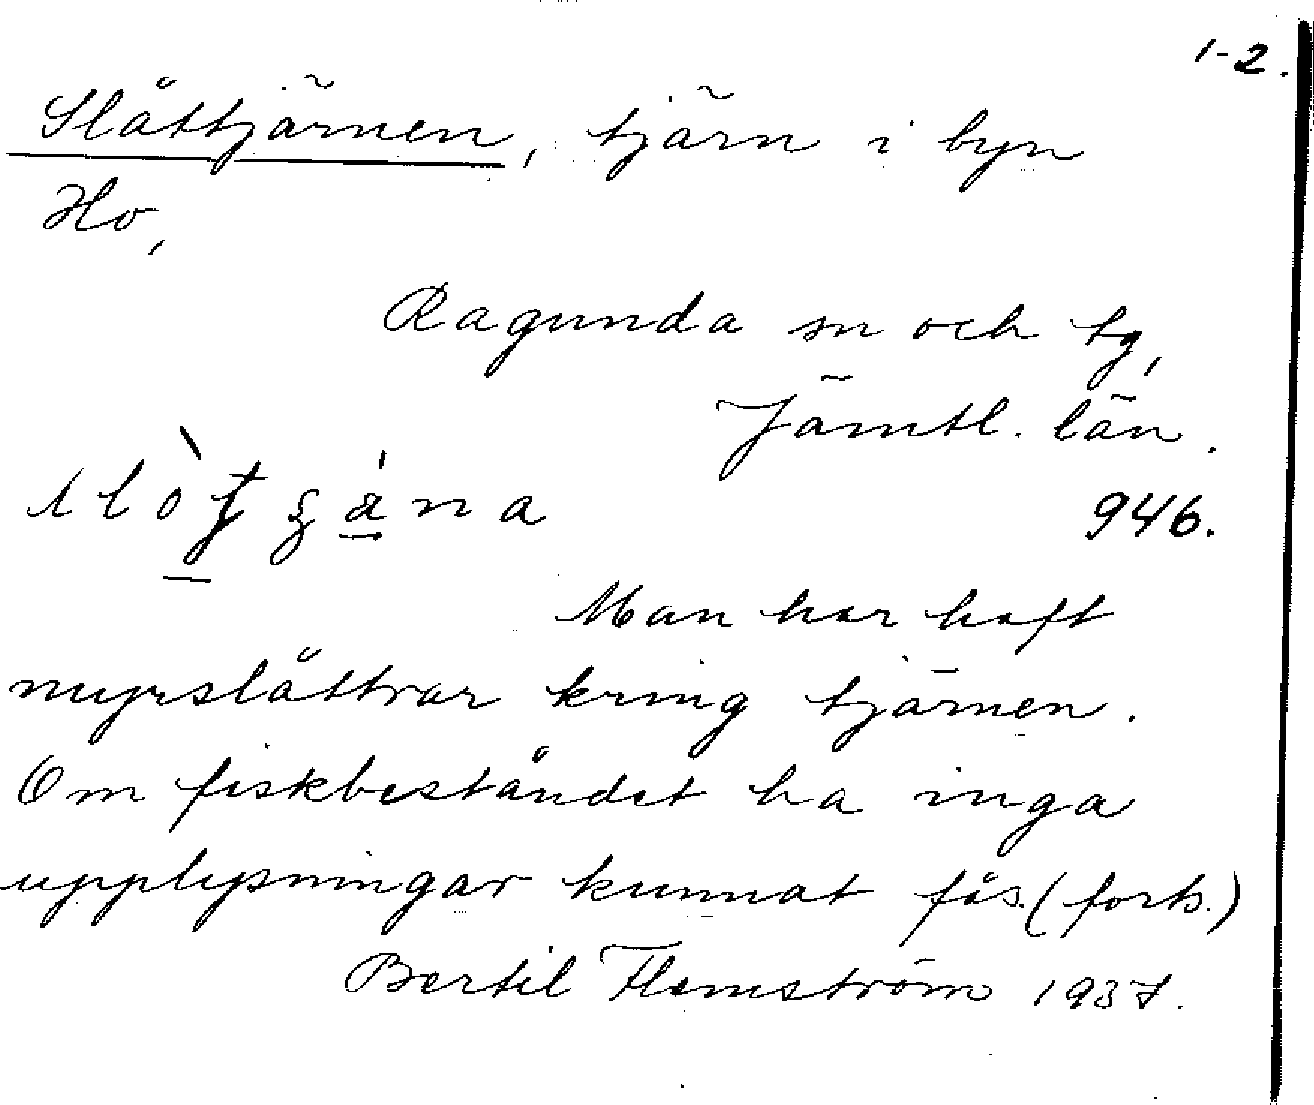 1-2.
Slåttjärnen, tjärn i byn
Ho,
Ragunda sn och tg,
Jämtl. län.
946.
Man har haft
myrslåttrar kring tjärnen.
Om fiskbeståndet ha inga
upplysningar kunnat fås. (forts.)
Bertil Flemström 1937.